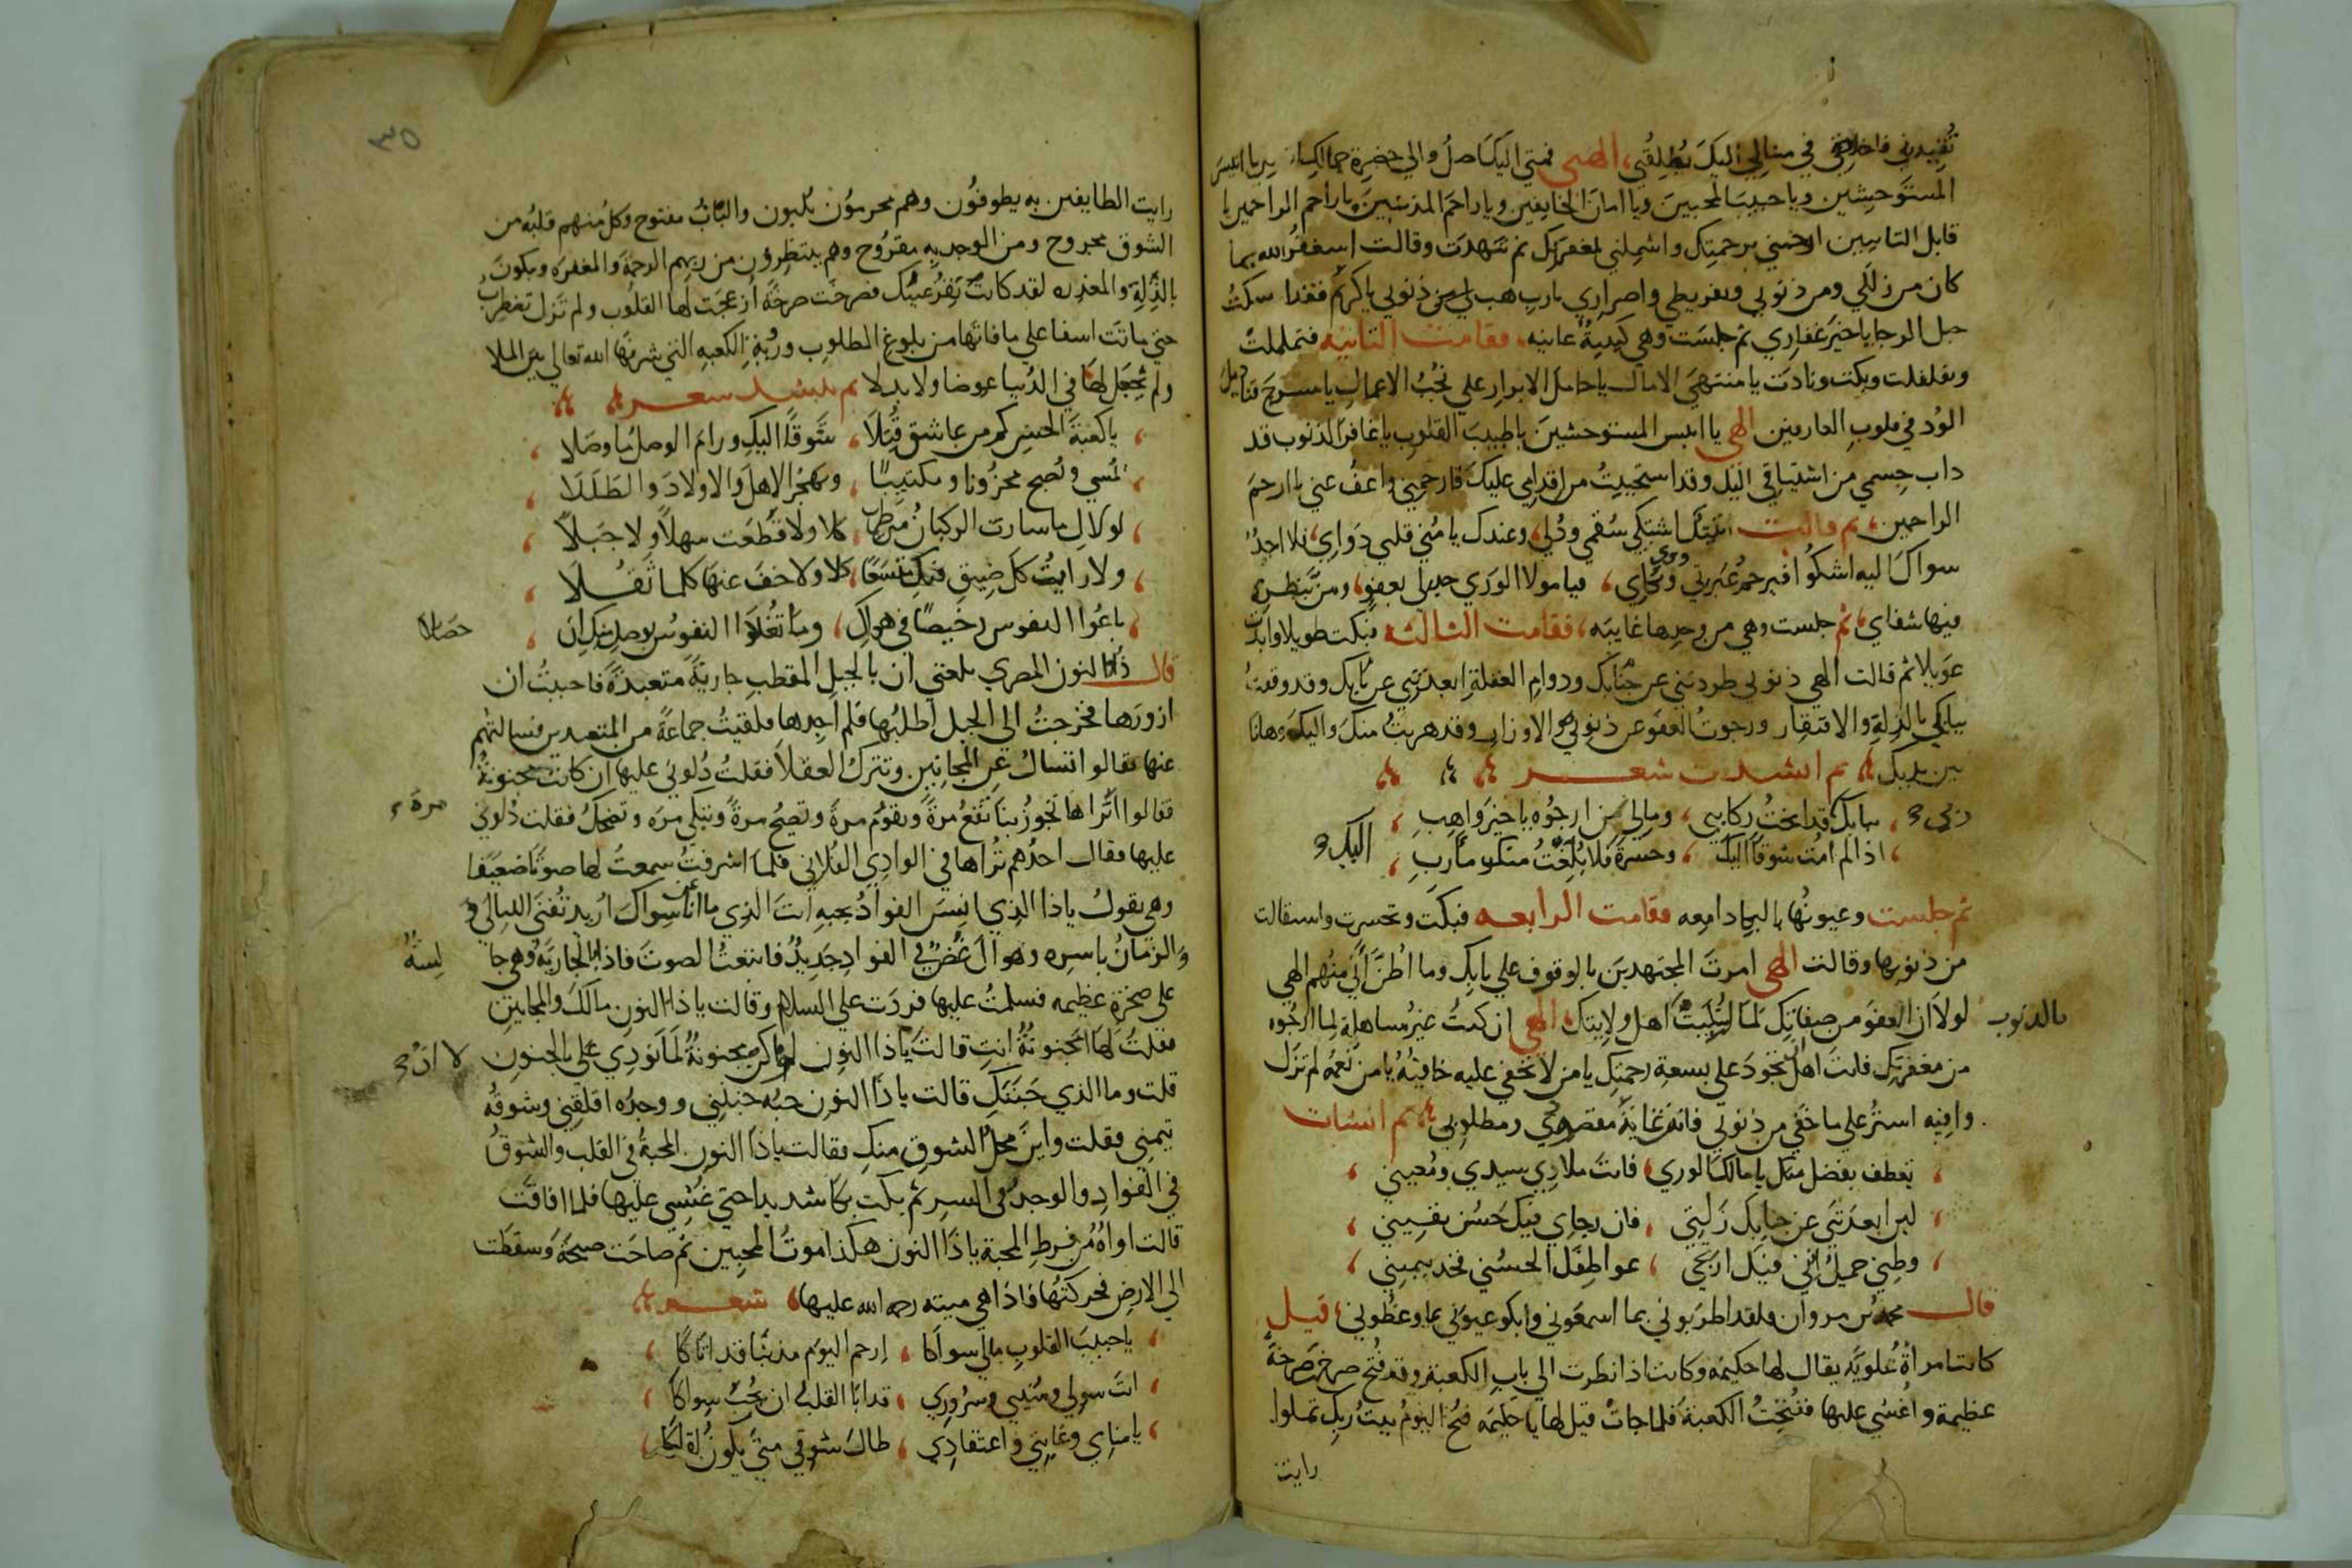 تُقيدني فاخلاصي في مناي اليك يُطلِقُني، الهي فمتي اليك اصلُ والي حضرة
المستوحشين ويا حبيبَ المحبين ويا امانَ الخايفين ويا راحمَ المذنبين يا راحم الراحمين يا
قابل التايبين ارحمني برحمتك واشملني بمغفرتك ثم تنهدَت وقالت استغفرُ الله بما
كان من زللي ومن ذنوبي وتفريطي واصراري يارب هب لي من ذنوبي ياكريم فقد امسكتُ
حبل الرجا ياخيرَ غفارِي ثم جلسَت وهي كيدية عانيه، فقامت الثانيه فتململتْ
وتقلقلت وبكت ونادَت يا منتهيَ الامال ياحاملَ الابرار علي نُجُب الاعمال يا مسرجَ قناديلَ
الوُد في قلوب العارفين الهي يا انيس المستوحشينَ ياطبيبَ القلوب ياغافرَ الذنوب قد
داب جِسمي من اشتياقي اليك وقد استحييتُ من اقدامي عليك فارحمني واعفُ عني ياارحمَ
الراحمين، ثم قالت اليك اشتكي سُقمي وذُلي، وعندك يا مُنَي قلبي دَوَاي، فلا احدٌ
سواكَ اليه اشكُوا فيرحمُ عَبرتي ويَري بُكاي، فيا مولا الوَري جد لي بعفوٍ، ومن بنظرةٍ
فيها شفاي، ثم جلست وهي من وجدها غايبَه، فقامت الثالثه فبكت طويلا وابدت
عَويلا ثم قالت الهي ذنوبي طردتني عن جنابك ودوام الغفلةِ ابعدَتني عن بابك وقد وقفتُ
ببابك بالذلةِ والافتقار ورجوتُ العفوَ عن ذنوبي والاوزار وقد هربتُ منكَ واليكَ وها انا
بين يديك، ثم انشدت شعر
ربي، ببابك قد انختُ ركايبي، ومالي من ارجُوه ياخيرَ واهِبِ،
، اذا لم امُت شوقًا اليك، وحسرةً فلا بُلِّغتُ منكم مأربِ، اليك
ثم جلست وعيونُها بالبكا دامِعه فقامت الرابعه فبكت وتحسرت واستقالت
من ذنوبها وقالت الهي امرتَ المجتهدينَ بالوقوف علي بابك وما اظنُّ أنّي منهم الهي
لولا ان العفوَ من صفاتِك لما ابتُليَت اهل ولايتك، الهي ان كنتُ غيرُ مساهلة لما ارجُوه
بالذنوب
من مغفرتِك فانتَ اهلٌ ان تجودَ علي بسعةِ رحمتِك يامن لا تخفي عليه خافيةُ يا من نعمُه لم تزل
وافيه استرُ علي ما خفي من ذنوبي فانتَ غايةُ مقصودي ومطلوبي، ثم انشات
، تعطف بفضل منك يا مالكَ الوري، فانتَ ملاذِي سيدي ومُعيني،
، لين ابعدَتني عن جنابِك زلتي، فان رجاي فيكَ حَسُن يقيني،
، وظني جميلٌ انني فيك ارتجي، عواطفَك الحسُني فخد بيميني،
قال محمد بن مروان فلقد اطرَبوني بما اسمعوني وابكو عيوني بما وعظُوني، قيل
كانت امراةٌ عُلويّه يقال لها حكيمَه وكانت اذا نظرت الي بابِ الكعبةِ وقد فُتح صرخت صرخةً
عظيمة واغشي عليها ففُتحَتُ الكعبةُ فلما جاتْ قيل لها يا حكيمه فُتح اليومُ بيتُ ربِك فلو
رايت
٣٥
رايت الطايفين به يطوفُون وهم محرمُون يُلبون والبَابُ مفتوح وكل منهم قلبُه من
الشوق مجروح ومن الوجد به مقرُوح وهم ينتظرُون من ربهم الرحمةَ والمغفرَه ويبكون
بالذِلةِ والمعذره لقد كانت تقرُ عينُك فصرخَت صرخةً ازعجَت لها القلُوب ولم تزل تضطربُ
حتي ماتَت اسفا علي مافاتَها من بلوغ المطلوب ورُؤيةِ الكعبهِ التي شرفَها الله تعالي بين الملا
ولم تَجعَل لهَا في الدُنيا عوضا ولابدلا ثم ينشد شعر
، يا كعبةَ الحسن كم من عاشق قُتِلَا، شَوقًا اليكِ ورامَ الوصلَ ما وصَلا،
، تمُسي وتُصبح محزُونا ومكتئِبًا، ويهجُر الاهلَ والاولادَ والطَلَلَا،
، لولاكِ ما سارت الركبانُ من طربٍ، كلا ولا قُطعَت سهلًا ولا جَبَلًا،
، ولا رايتُ كل ضِيقٍ فيكِ متسعًا، كلا ولا خفَ عنها كلما ثَقُلا،
، باعُوا النفوس رخيصًا في هواكِ، وما تَغلُوا النفوسُ بوصلٍ منكِ ان، حصلا
قال ذُا النون المصري بلغني ان بالجبل المقطب جاريةً متعبدةً فاحببتُ ان
ازورَها فخرجتُ الي الجبل اطلبُها فلم اجِدها فلقيتُ جماعةً من المتعبدين فسالتهُم
عنها فقالو اتسالُ عن المجانين وتتركُ العقلا فقلتُ دُلوني عليها ان كانت مجنونةُ
فقالوا انَّراها تجوزُ بنا تَقعُ مرةً وتقوم مرةً وتصيحُ مرةً وتبكي مرَه وتضحكُ فقلت دُلوني
مرة
عليها فقال احدُهم تراها في الوادِي الفُلاني فلما اشرفتُ سمعتُ لها صوتًا ضعيفًا
وهي تقولُ ياذا الذِي انِسَ الفوادُ بحبهِ انتَ الذِي ما ان سواكَ اريد تُفني الليالي
والزمَانُ باسرِه وهواكَ غضٌّ في الفوادِ جَديدُ فاتبعتُ الصوتَ فاذا بالجاريَة وهي جا
لسةُ
علي صخرةٍ عظيمه فسلمتُ عليها فردَت علي السلام وقالت ياذا النون مالكَ والمجانينِ
فقلتُ لَها امجنونةُ انتِ قالت ياذا النون لو لم اكن مجنونةُ لما نودِي علي بالجنون
لا ان
قلت وما الذي جَنَنَكِ قالت ياذا النون حبُه جنني ووجدُه اقلقَني وشوقُه
تيمني فقلت واينَ محلُ الشوق منكِ فقالت ياذا النون المحبةُ في القلب والشوقُ
في الفوادِ والوجدُ في السر ثم بكت بكا شديدا حتي غُشِي عليها فلما افاقَت
قالت اواهُ من فرطِ المحبة ياذا النون هكذا موتُ المحبين ثم صاحَت صيحةً وسقطَت
الي الارض فحركتُها فاذا هي ميته رحمه الله عليها، شعر
، يا حبيبَ القلوب مالي سواكا، إرحم اليومَ مذنبًا قد اتاكا،
، انتَ سولي ومُنيتي وسرُوري، قد ابا القلبُ ان يحُبُّ سواكا،
، يامناي وغايتي واعتقادِي، طال شوقي متي يكونُ لقاكا،